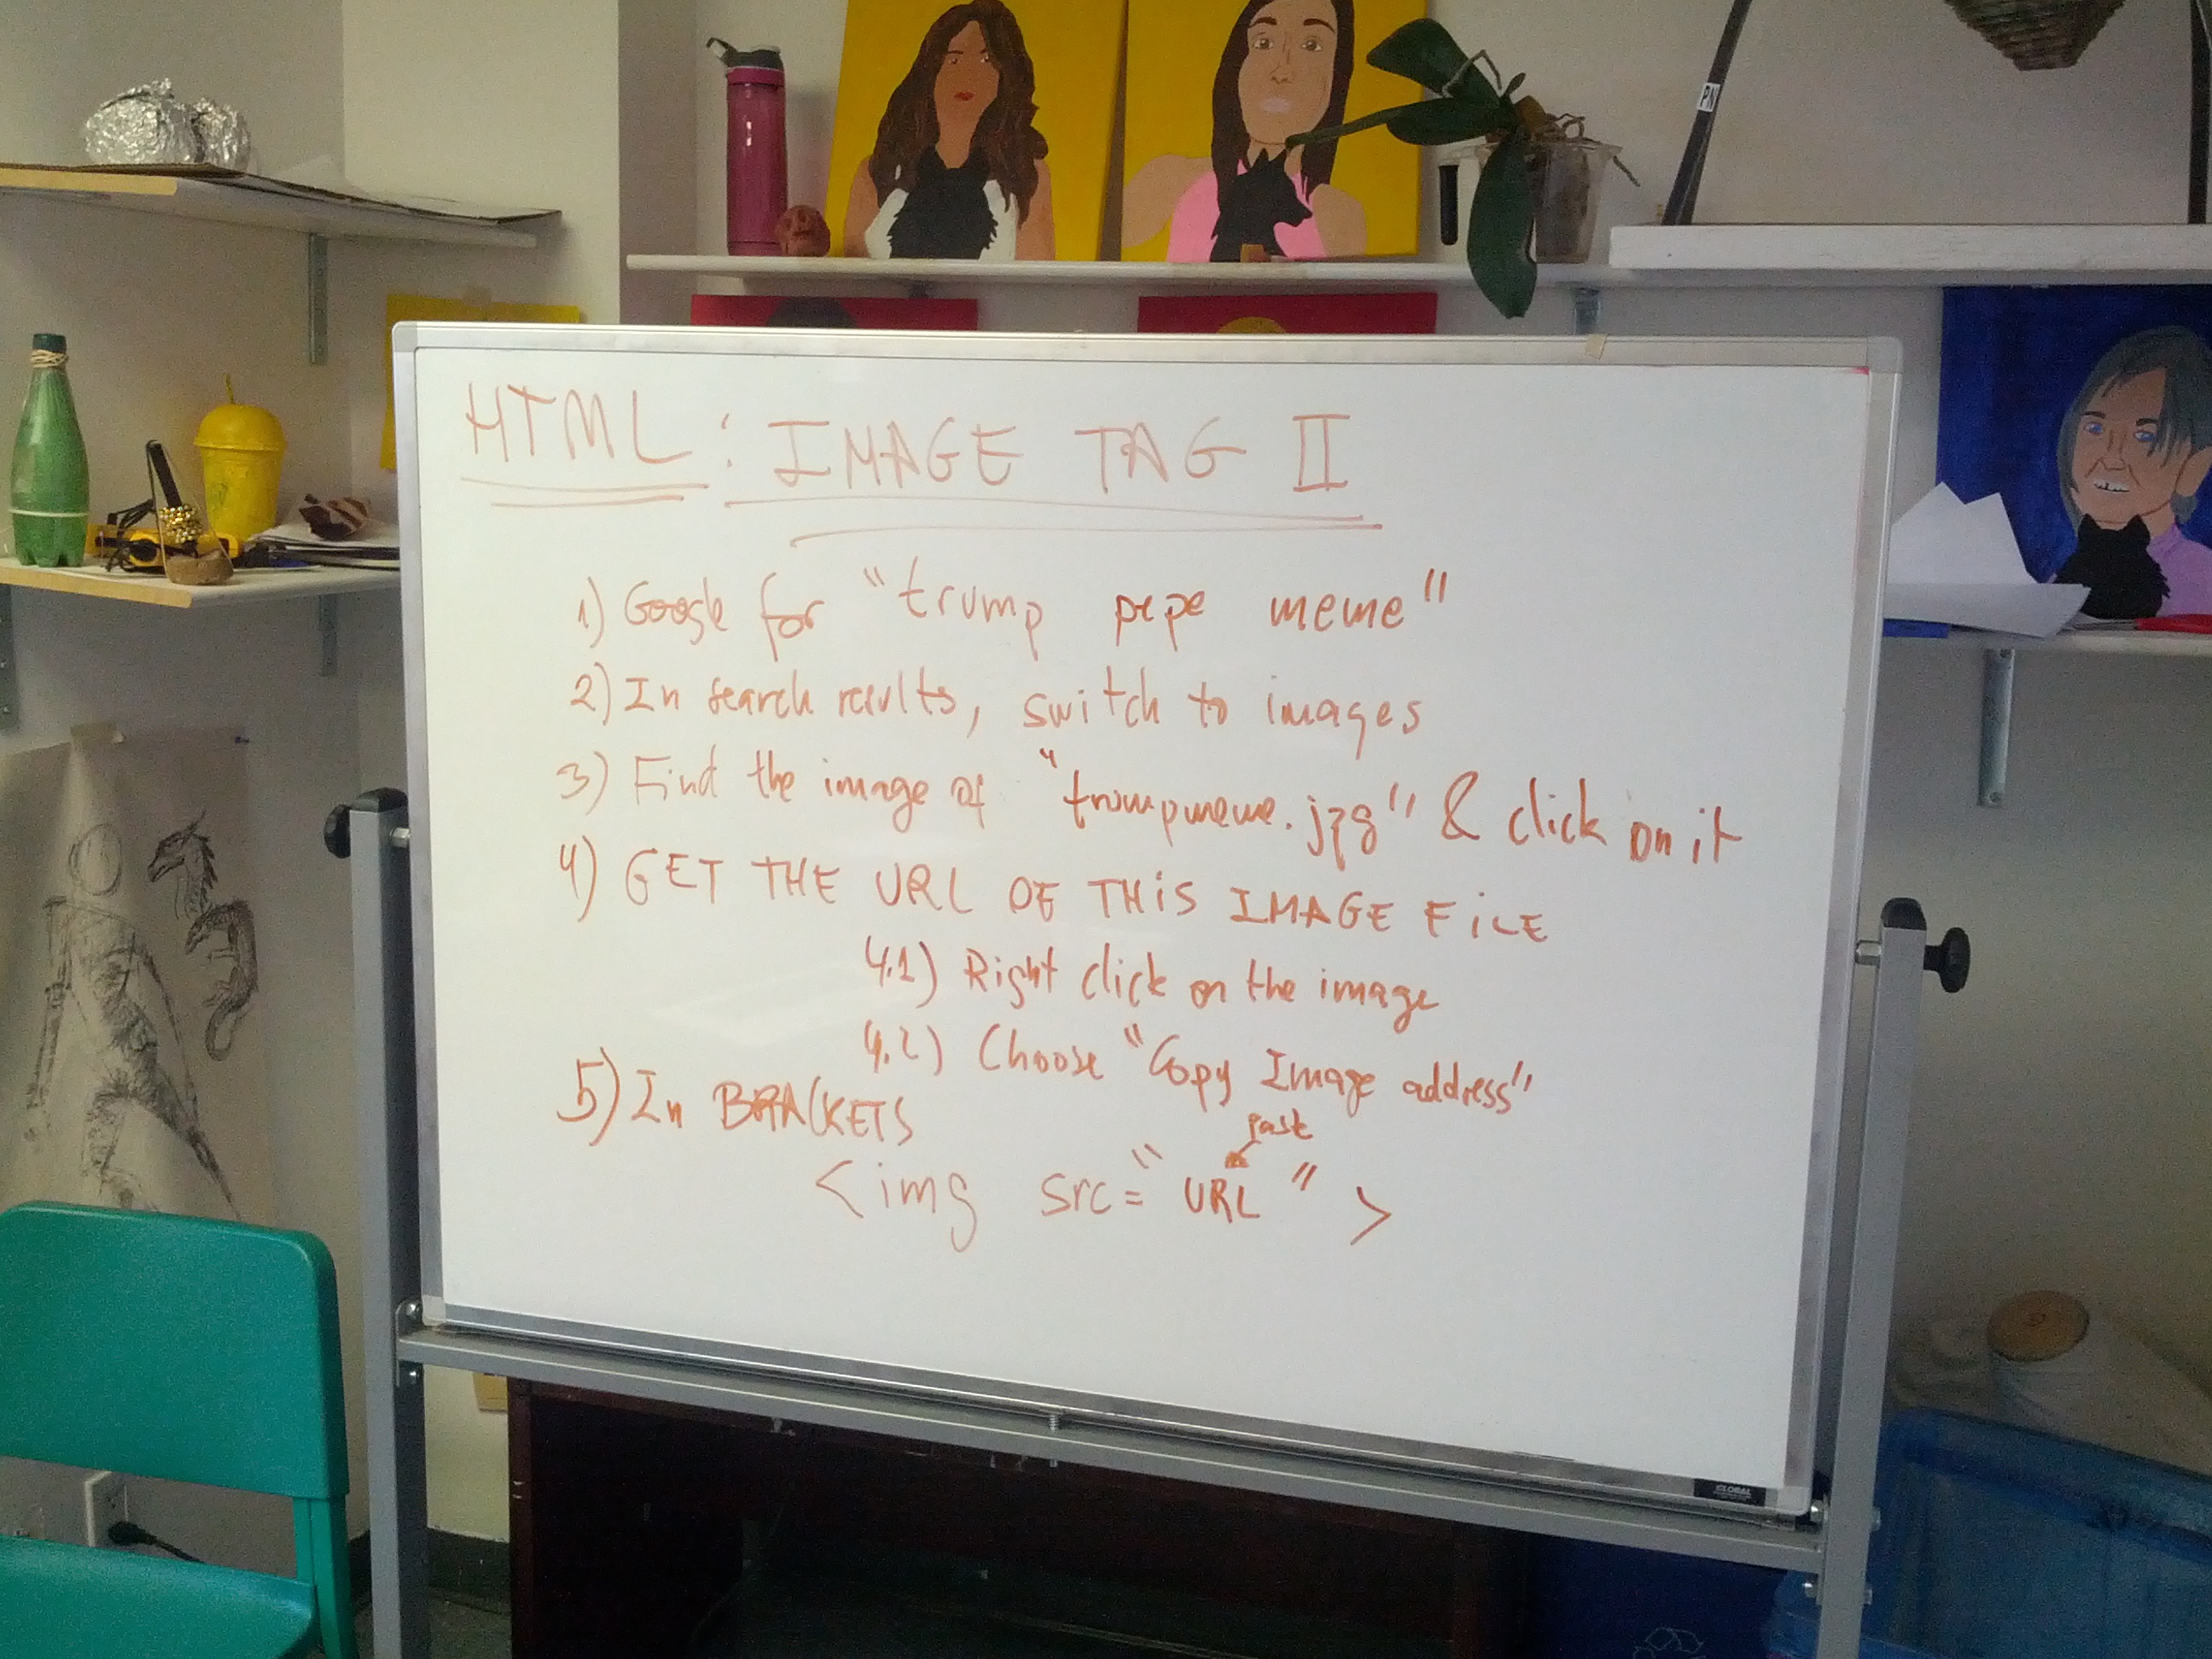 HTML: IMAGE TAG II
1) Google for "trump pepe meme"
2) In search results, switch to images
3) Find the image of "trumpmeme.jpg" & click on it
4) GET THE URL OF THIS IMAGE FILE
4.1) Right click on the image
4.2) Choose "Copy Image address"
5) In BRACKETS
past
<img src="URL">
GLOBAL
PN